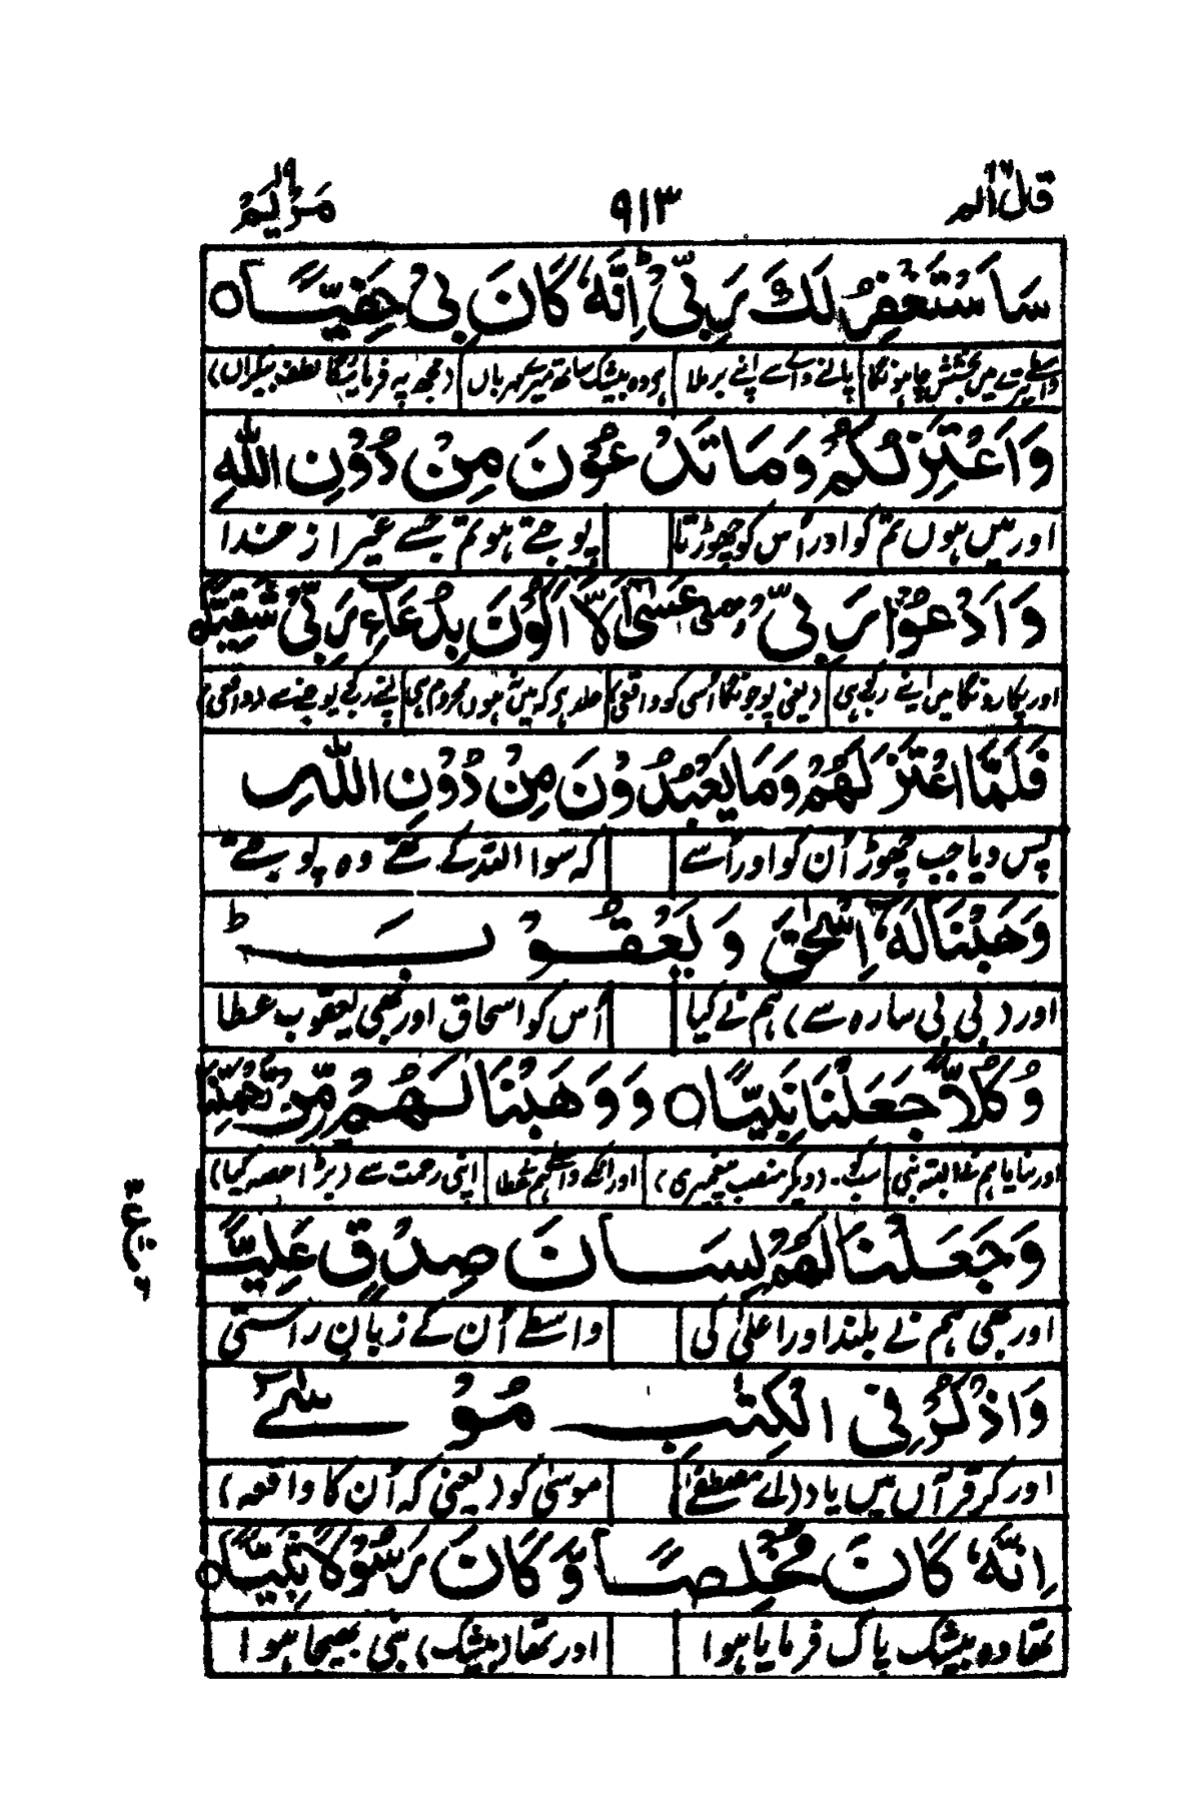 قال الم ١٦ ٩١٣ مريم ١٩
سَاَسْتَغْفِرُ لَكَ رَبِّیْ ؕ اِنَّهٗ كَانَ بِیْ حَفِیًّا ○
واسطے تیرے میں بخشش چاہونگا پالنے والے سے اپنے برملا ہو وہ بیشک ساتھ میرے مہرباں (مجھ پہ فرمائیگا لطف بیکراں)
وَاَعْتَزِلُكُمْ وَمَا تَدْعُوْنَ مِنْ دُوْنِ اللّٰهِ
اور میں ہوں تم کو اور اُس کو چھوڑتا پوجتے ہو تم جسے غیر از خدا
وَاَدْعُوْا رَبِّیْ ۖ عَسٰۤی اَلَّاۤ اَكُوْنَ بِدُعَآءِ رَبِّیْ شَقِیًّا ○
اور پکارونگا میں اپنے رب کے ہی (یعنی پوجونگا اُسی کو واقعی) جلد ہی کہ میں ہوں محروم ہی اپنے رب کے پوجنے سے (واقعی)
فَلَمَّا اعْتَزَلَهُمْ وَمَا یَعْبُدُوْنَ مِنْ دُوْنِ اللّٰهِ
پس دیا جب چھوڑ اُن کو اور اُسے کہ سوا اللہ کے تھے وہ پوجتے
وَهَبْنَا لَهٗۤ اِسْحٰقَ وَ یَعْقُوْبَ ؕ
اور (بی بی سارہ سے) ہم نے کیا اُس کو اسحاق اور بھی یعقوب عطا
وَكُلًّا جَعَلْنَا نَبِیًّا ○ وَ وَهَبْنَا لَهُمْ مِّنْ رَّحْمَتِنَا
اور بنایا ہم نے البتہ نبی سب کو (دیکر منصب پیغمبری) اور انکے واسطے ہم نے بخطا اپنی رحمت سے (بڑا حصہ کیا)
وَجَعَلْنَا لَهُمْ لِسَانَ صِدْقٍ عَلِیًّا
اور بھی ہم نے بلند اور اعلیٰ کی واسطے اُن کے زبانِ راستی
وَاذْكُرْ فِی الْكِتٰبِ مُوْسٰۤی
اور کر قرآں میں یاد (اے مصطفےٰ) موسیٰ کو (یعنی کہ اُن کا واقعہ)
اِنَّهٗ كَانَ مُخْلَصًا وَّ كَانَ رَسُوْلًا نَّبِیًّا ○
تھا وہ بیشک پاک فرمایا ہوا اور تھا (بیشک) نبی بھیجا ہوا